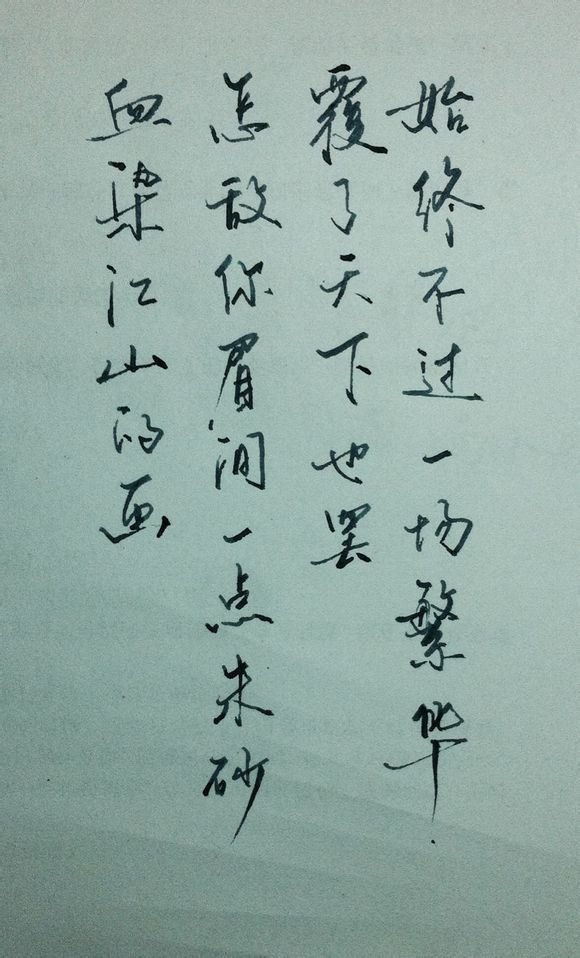 始终不过一场繁华
覆了天下也罢
怎敌你眉间一点朱砂
血染江山的画